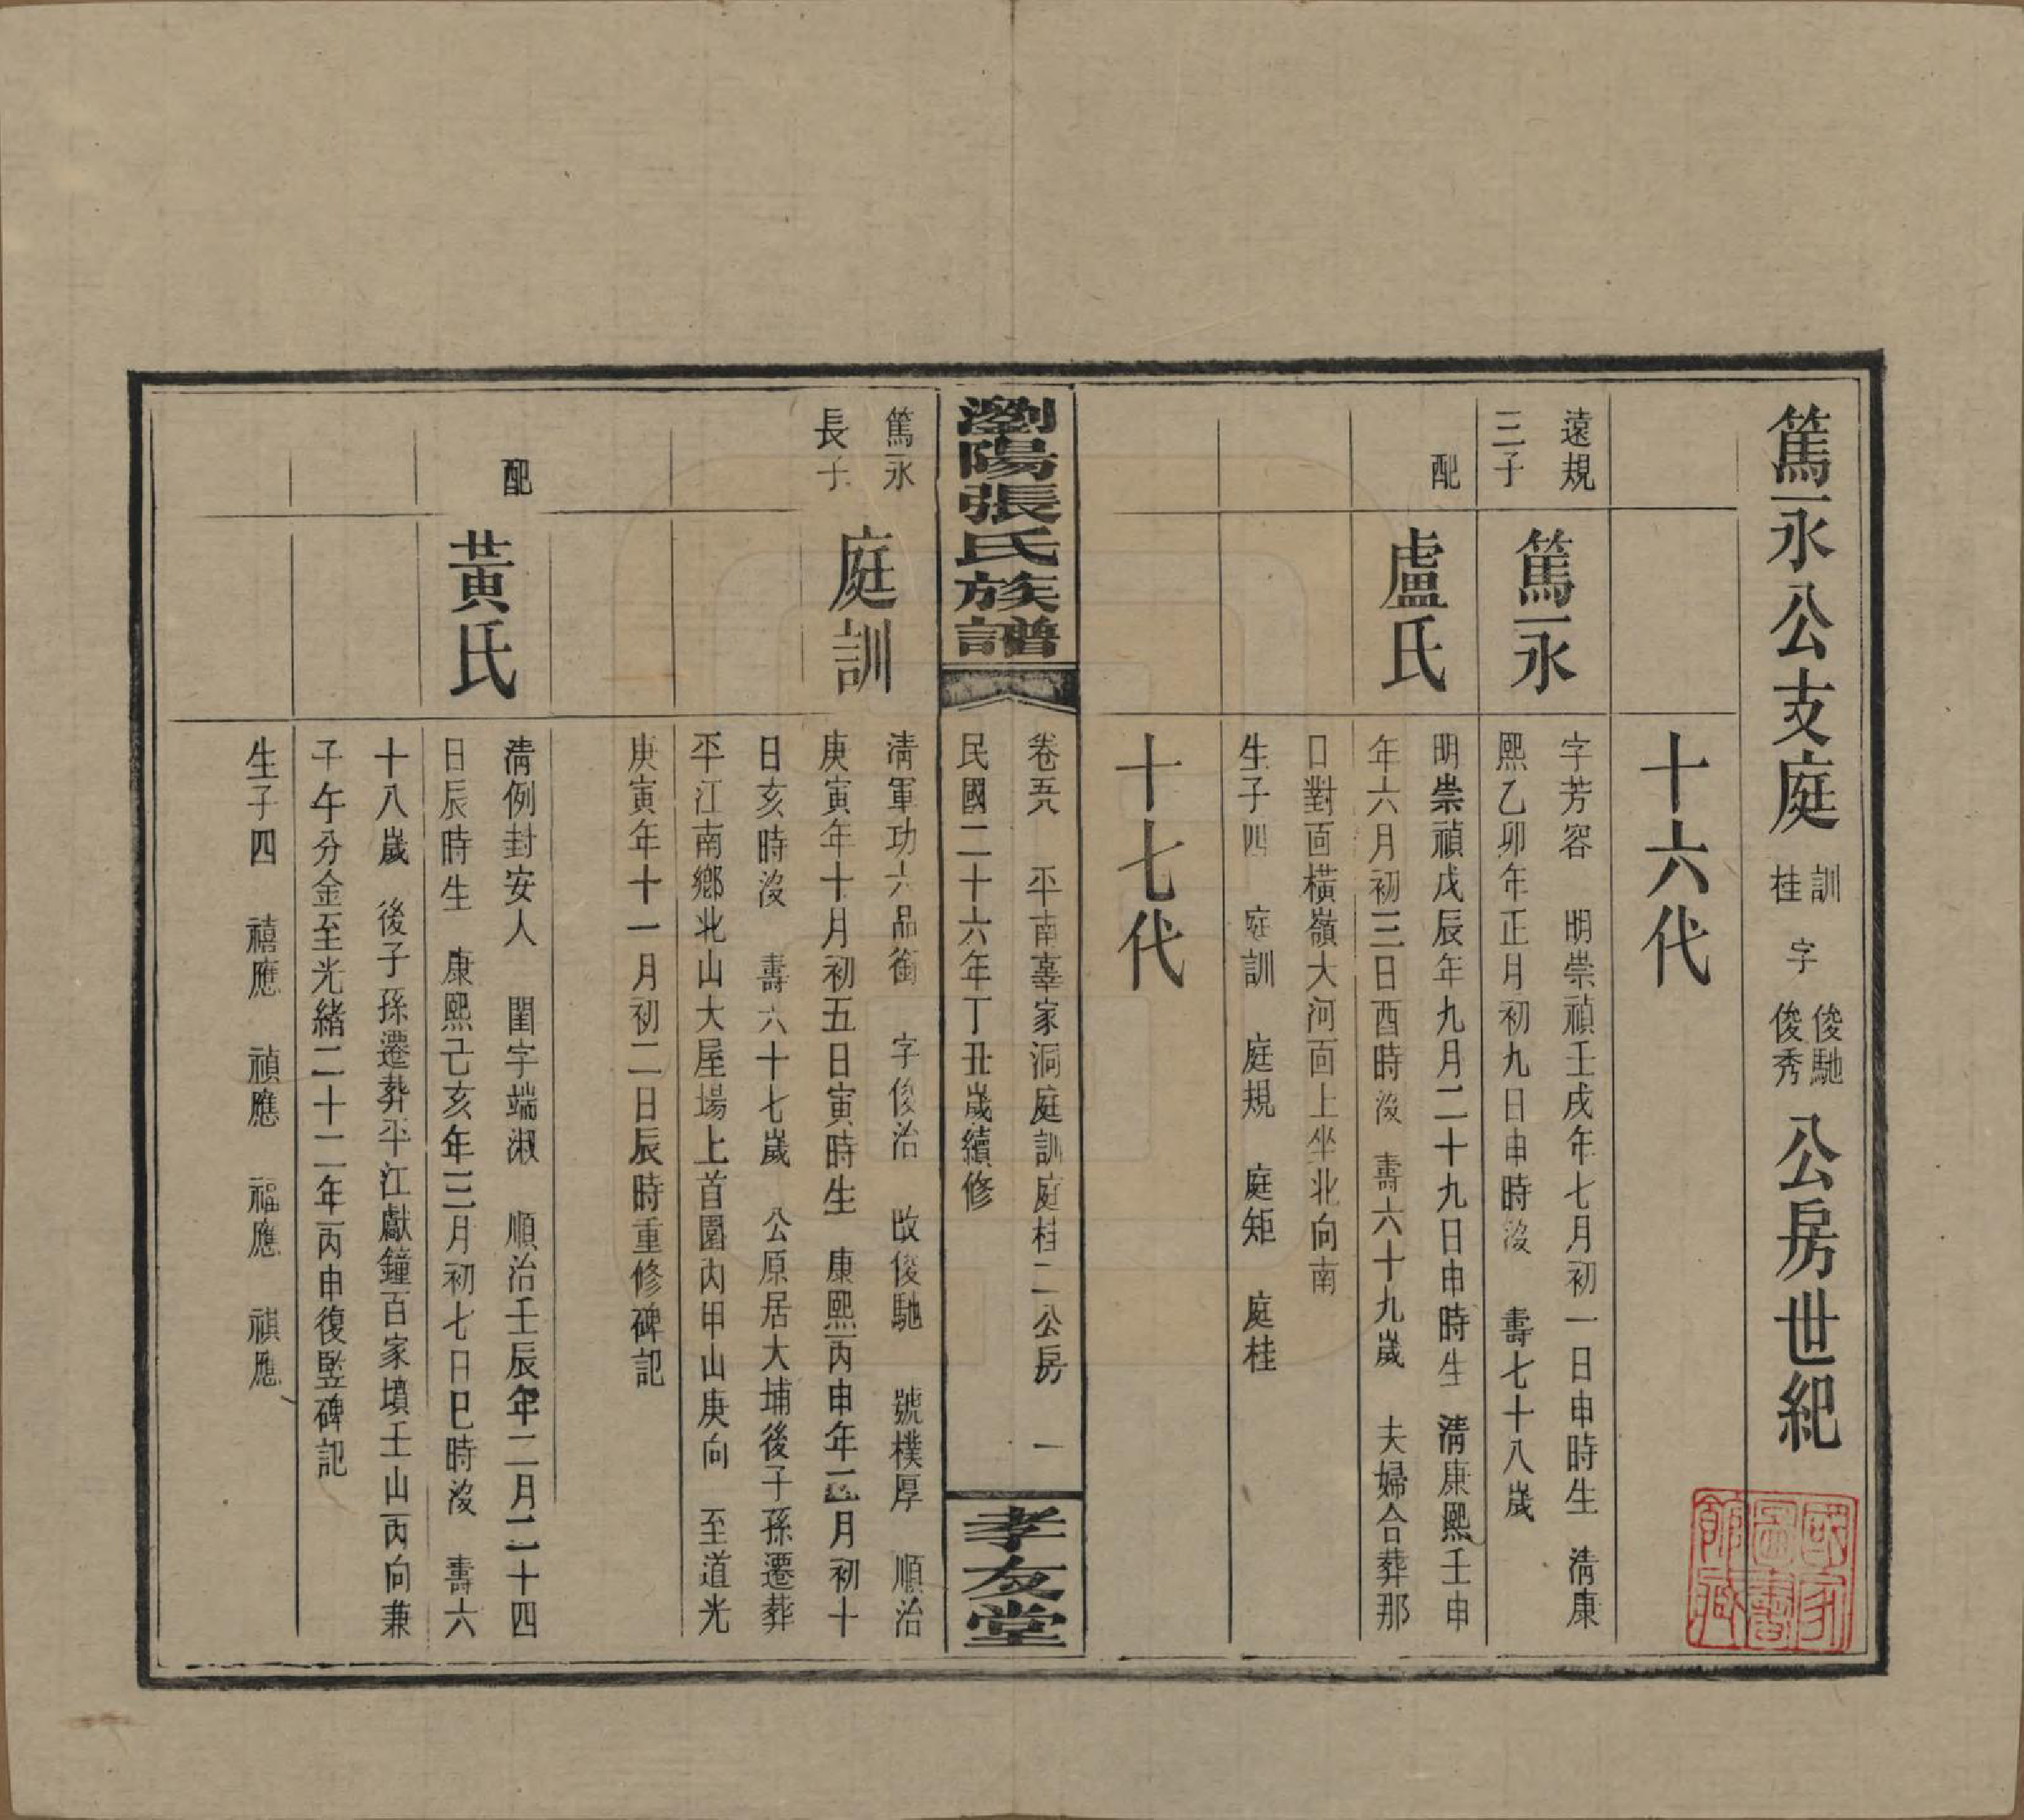 篤永公支庭訓桂字俊馳俊秀公房世紀
十六代
遠規
三子
篤永
字芳容　明崇禎壬戌年七月初一日申時生　清康
熙乙卯年正月初九日申時沒　壽七十八歲
配
盧氏
明崇禎戊辰年九月二十九日申時生　清康熙壬申
年六月初三日酉時沒　壽六十九歲　夫婦合葬那
口對面橫嶺大河面上坐北向南
生子四　庭訓　庭規　庭矩　庭桂
十七代
瀏陽張氏族譜
卷五　平南辜家洞庭訓庭桂二公房　一
民國二十六年丁丑歲續修
孝友堂
篤永
長子
庭訓
清軍功六品銜　字俊治　改俊馳　號樸厚　順治
庚寅年十月初五日寅時生　康熙丙申年三月初十
日亥時沒　壽六十七歲　公原居大埔後子孫遷葬
平江南鄉北山大屋場上首園內甲山庚向　至道光
庚寅年十一月初二日辰時重修碑記
配
黃氏
清例封安人　閨字端淑　順治壬辰年二月二十四
日辰時生　康熙己亥年三月初七日巳時沒　壽六
十八歲　後子孫遷葬平江獻鐘百家墳壬山丙向兼
子午分金至光緒二十二年丙申復竪碑記
生子四　禧應　禎應　福應　祺應
國家圖書館藏